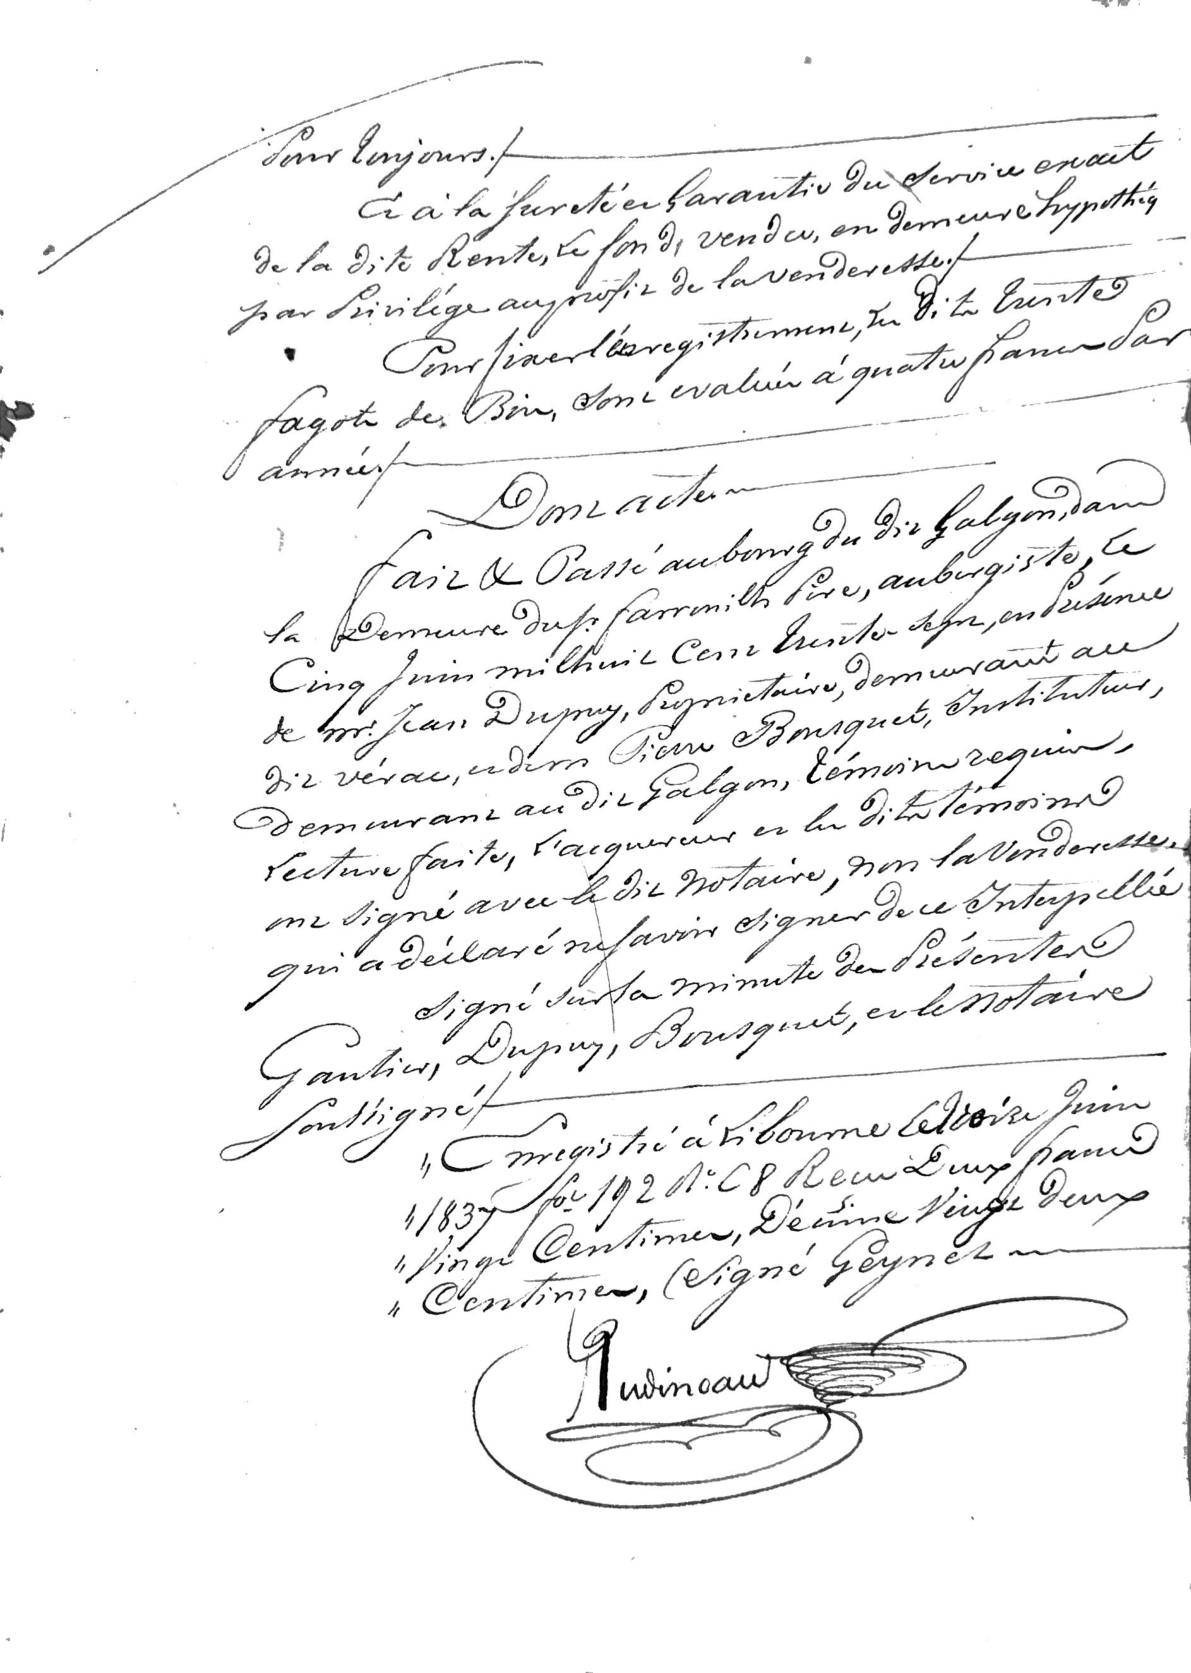 Pour toujours./
Et à la sureté et Garantie du Service exact
de la dite Rente, Le fond, vendu, en demeure hypothéq
par Privilége au profit de la venderesse./
Pour fixer l'enregistrement, les dits trente
fagots de Bois, sont evalués à quatre francs Par
année./
Dont acte
fait & Passé au bourg du dit Galgon, dans
la Demeure du sr farrouilh Père, aubergiste, Le
Cinq Juin mil huit Cent trente sept, en Présence
de mr. Jean Dupuy, Propriétaire, demeurant au
dit vérac, et de mr Pierre Bousquet, Instituteur,
demeurant au dit Galgon, témoins requis,
Lecture faite, L'acquereur et les dits témoins
ont signé avec le dit Notaire, non la Venderesse
qui a déclaré ne savoir signer de ce Interpellée
Signé sur la minute des Présentes
Gautier, Dupuy, Bousquet, et le Notaire
soussigné/
" Enregistré à Libourne Le treize Juin
" 1837 fo. 192 Ro. C 8 Recu Deux francs
" Vingt Centimes, Décime Vingt deux
" Centimes, (Signé Geynet
Audineau